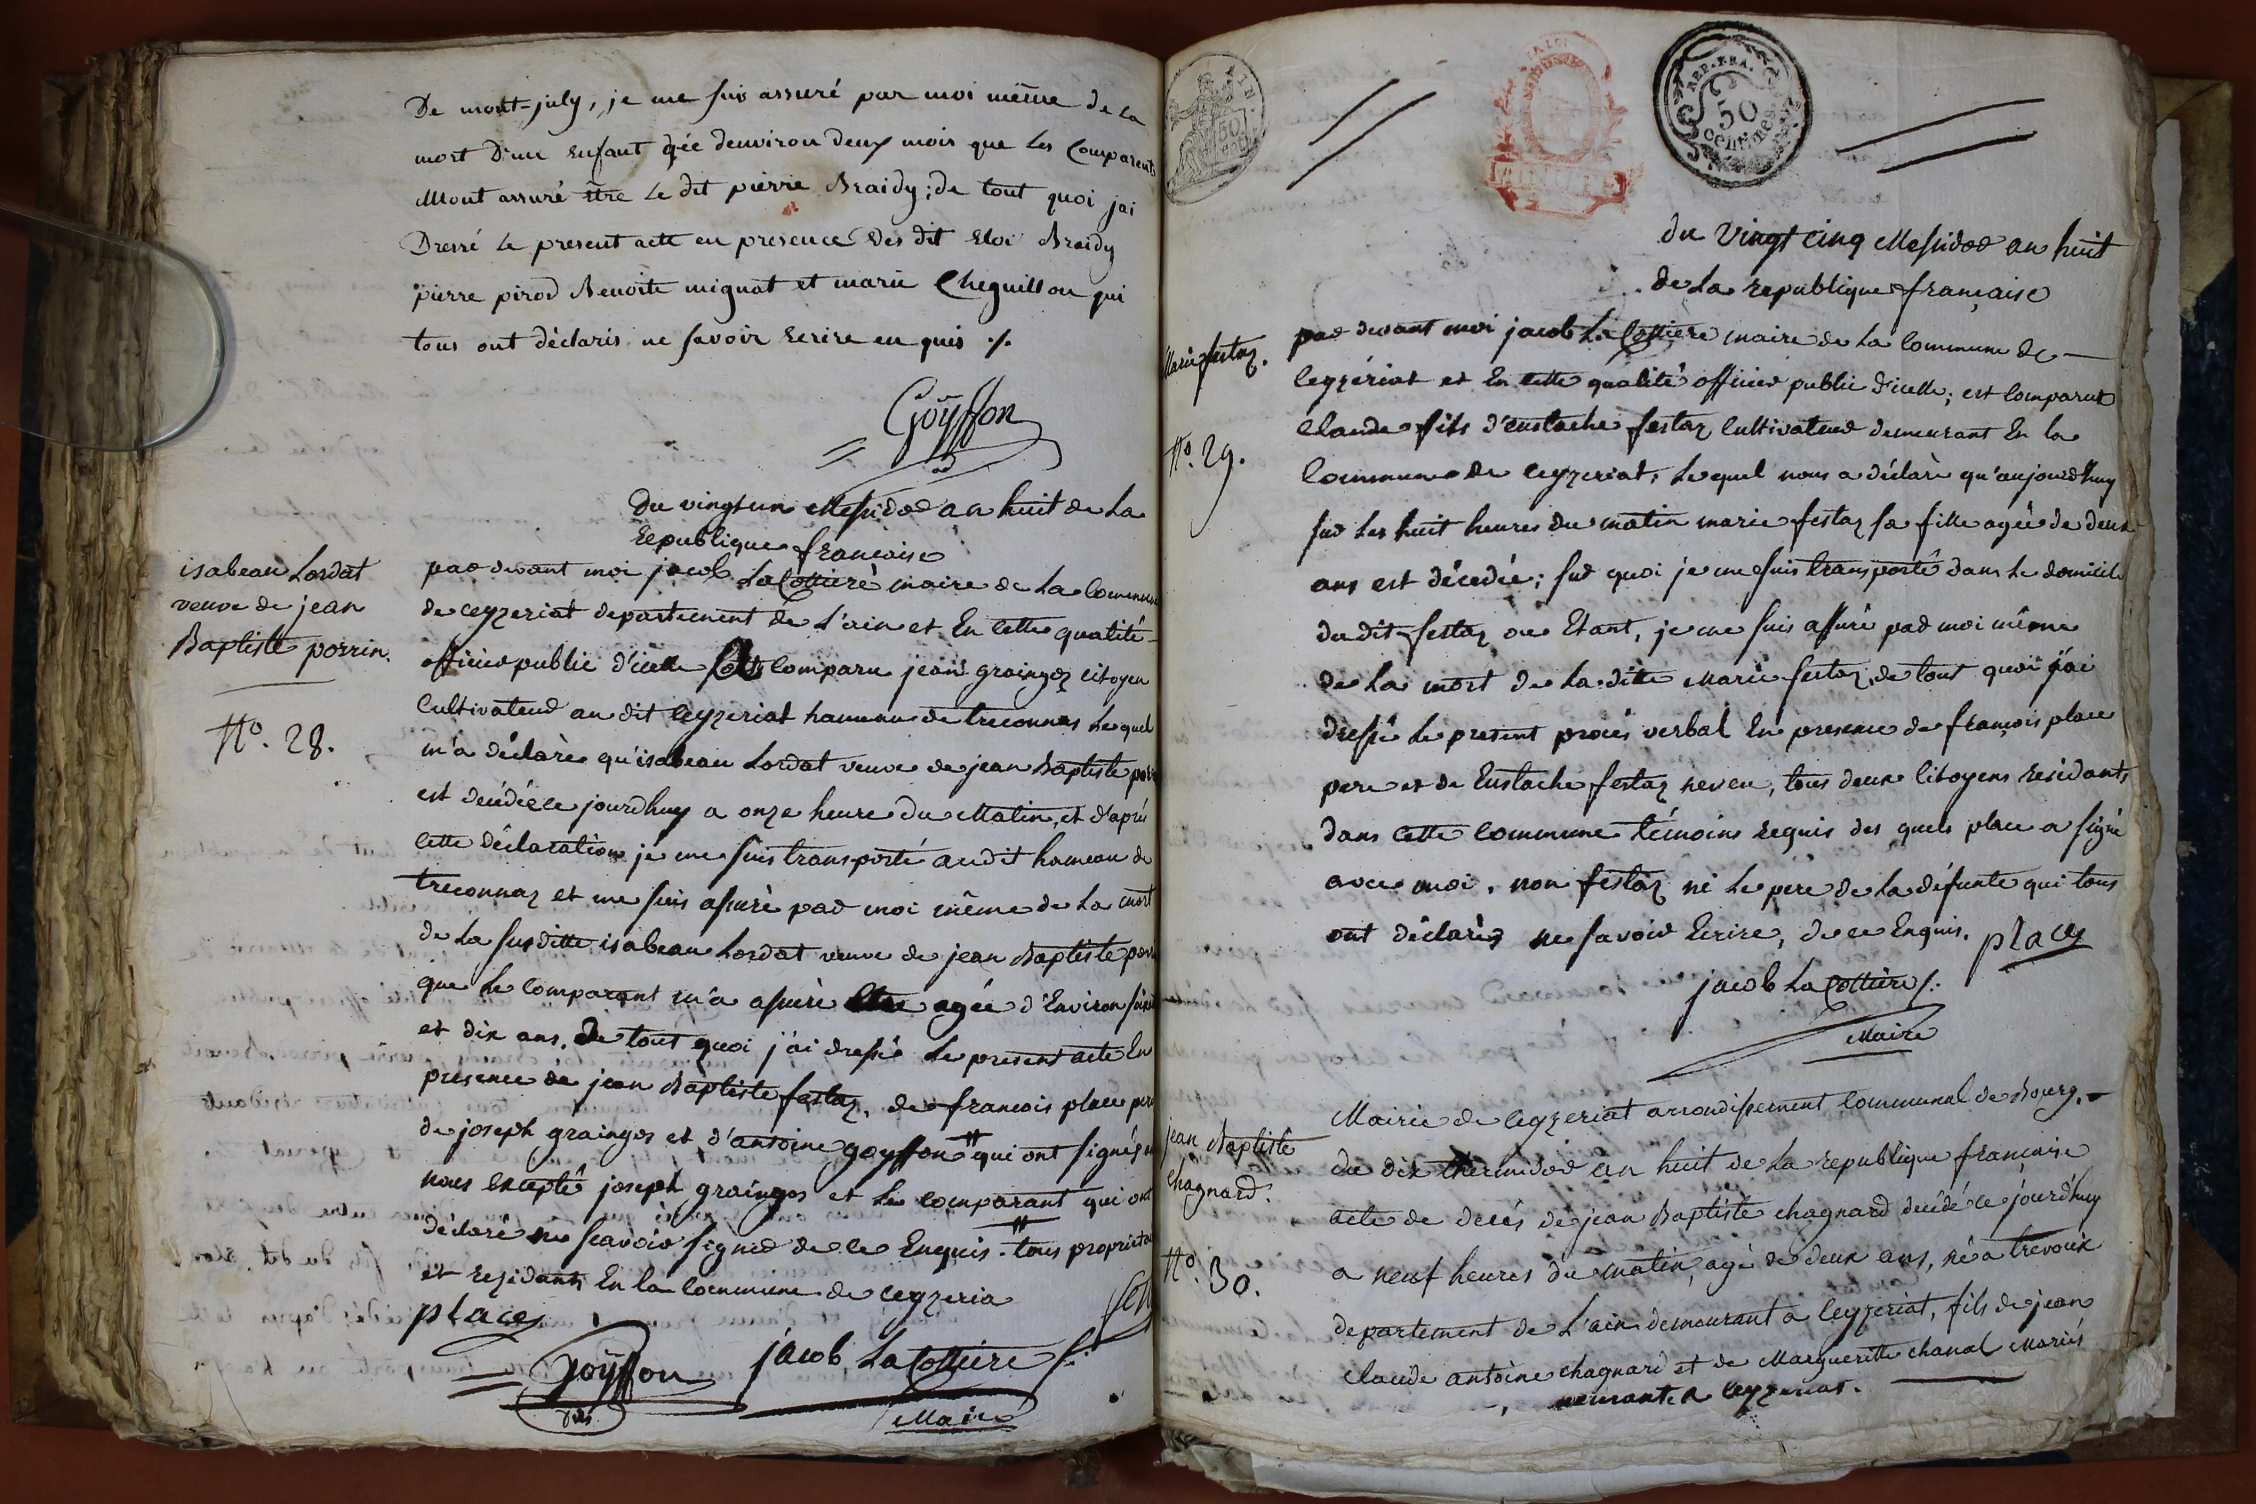 De mont-july, je me suis assuré par moi même de La
mort D'un Enfant agée denviron deux mois que Les Comparents
Mont assuré être Le dit pierre Braidy; de tout quoi jai
Dressé Le present acte en presence Des dit Eloi Braidy
pierre pirod Benoite mignat et marie Cheguillon qui
tous ont déclaris ne savoir Ecrire enquis ./.
Goÿffon
Du vingt un Messidor an huit de La
Republique francaise
isabeau Lordat
veuve de jean
Baptiste porrin.
N.º 28.
par devant moi jacob La Cottiere maire de La Commune
de ceyzeriat departement de L'ain et En cette qualité
officier public d'icelle Est Comparu jean graingez citoyen
Cultivateur au dit Ceyzeriat hameau de treconnas Lequel
m'a déclarè qu'isabeau Lordat veuve de jean Baptiste
est decédée ce jourdhuy a onze heure du Matin, et d'après
Cette déclaration je me suis transporté audit hameau de
treconnaz et me suis assurè par moi même de La mort
de La susditte isabeau Lordat veuve de jean Baptiste
que Le Comparant m'a assurè Etre agée d'Environ
et dix ans. De tout quoi j'ai dressé Le present acte En
presence de jean Baptiste festaz, de francois place pere
de joseph grainges et d'antoine goyffon # qui ont signés
nous Excepté joseph grainges et Le comparant qui ont
déclaré ne scavoir signer de ce Enquis. # tous
et residants En la Commune de ceyzeria
place
Goÿffon jacob La Cottiere
Maire
AIN
50
LA LOI
REP. FRA.
50
centimes
du vingt cinq Messidor an huit
de La republique française
Marie festaz.
N.º 29.
par devant moi jacob La Cottiere maire de La Commune de
Ceyzériat et En cette qualité officier public d'icelle; est Comparut
Claude fils d'eustache festaz Cultivateur demeurant En la
Commune de Ceyzeriat, Lequel nous a déclarè qu'aujourdhuy
sur Les huit heures du matin marie festaz sa fille agée de deux
ans est décedée; sur quoi je me suis transporté dans Le domicile
du dit festaz ou Etant, je me suis assuré par moi même
de La mort de La ditte Marie festaz, de tout quoi j'ai
dressé Le present procés verbal En presence de françois place
pere et de Eustache festaz neveu, tous deux Citoyens residants
dans cette Commune témoins requis des quels place a signé
avec moi, non festaz ni Le pere de La défunte qui tous
ont déclarès ne savoir Ecrire, de ce Enquis. place
jacob La Cottiere
Maire
jean Baptiste
chagnard.
N.º 30.
Mairie de Ceyzeriat arrondissement Communal de Bourg.
du dix thermidor an huit de La republique francaise
acte de decés de jean Baptiste chagnard decédé ce jourdhuy
a neuf heures du matin, agé de deux ans, né a trevoux
departement de L'ain demeurant a Ceyzeriat, fils de jean
Claude antoine chagnard et de Margueritte chanal Mariés
demeurants a Ceyzeriat.